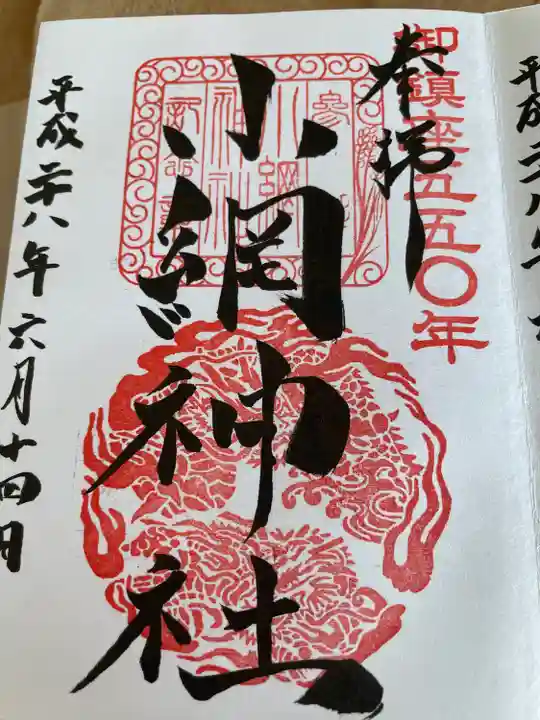 御鎮座五五〇年
奉拝
小網神社
平成二十八年六月十四日
平成二八年